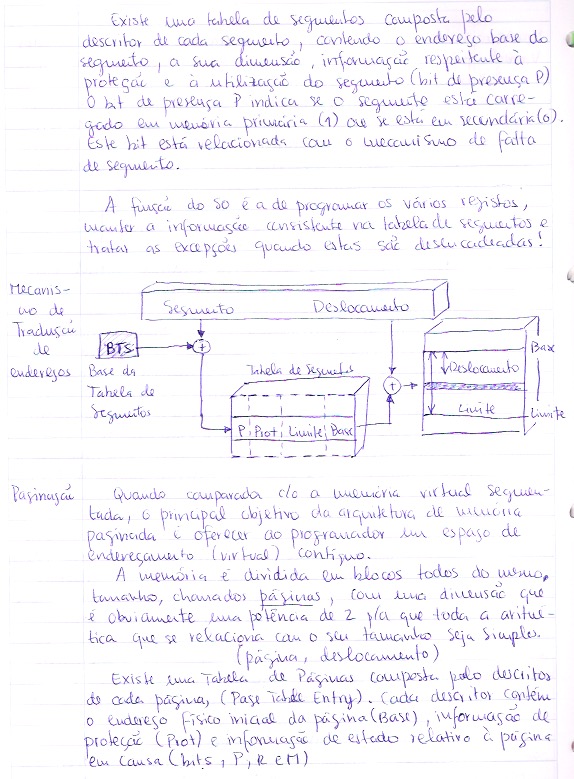 Existe uma tabela de segmentos composta pelo
descritor de cada segmento, contendo o endereço base do
segmento, a sua dimensão, informação respeitante à
proteção e à utilização do segmento (bit de presença P)
O bit de presença P indica se o segmento está carre-
gado em memória primária (1) ou se está em secundária (0).
Este bit está relacionado com o mecanismo de falta
de segmento.
A função do SO é a de programar os vários registos,
manter a informação consistente na tabela de segmentos e
tratar as excepções quando estas são desencadeadas!
Mecanis-
mo de
Tradução
de
endereços
Segmento Deslocamento
BTS
+
Base da
Tabela de
Segmentos
Tabela de Segmentos
P Prot Limite Base
+
Base
Deslocamento
Limite
Limite
Paginação
Quando comparada c/o a memória virtual segmen-
tada, o principal objetivo da arquitetura de memória
paginada é oferecer ao programador um espaço de
endereçamento (virtual) contíguo.
A memória é dividida em blocos todos do mesmo,
tamanho, chamados páginas, com uma dimensão que
é obviamente uma potência de 2 p/a que toda a aritmé-
tica que se relaciona com o seu tamanho seja simples.
(página, deslocamento)
Existe uma Tabela de Páginas composta pelo descritos
de cada página, (Page Table Entry). Cada descritor contém
o endereço físico inicial da página (Base), informação de
proteção (Prot) e informação de estado relativo à página
em causa (bits, P, R e M)